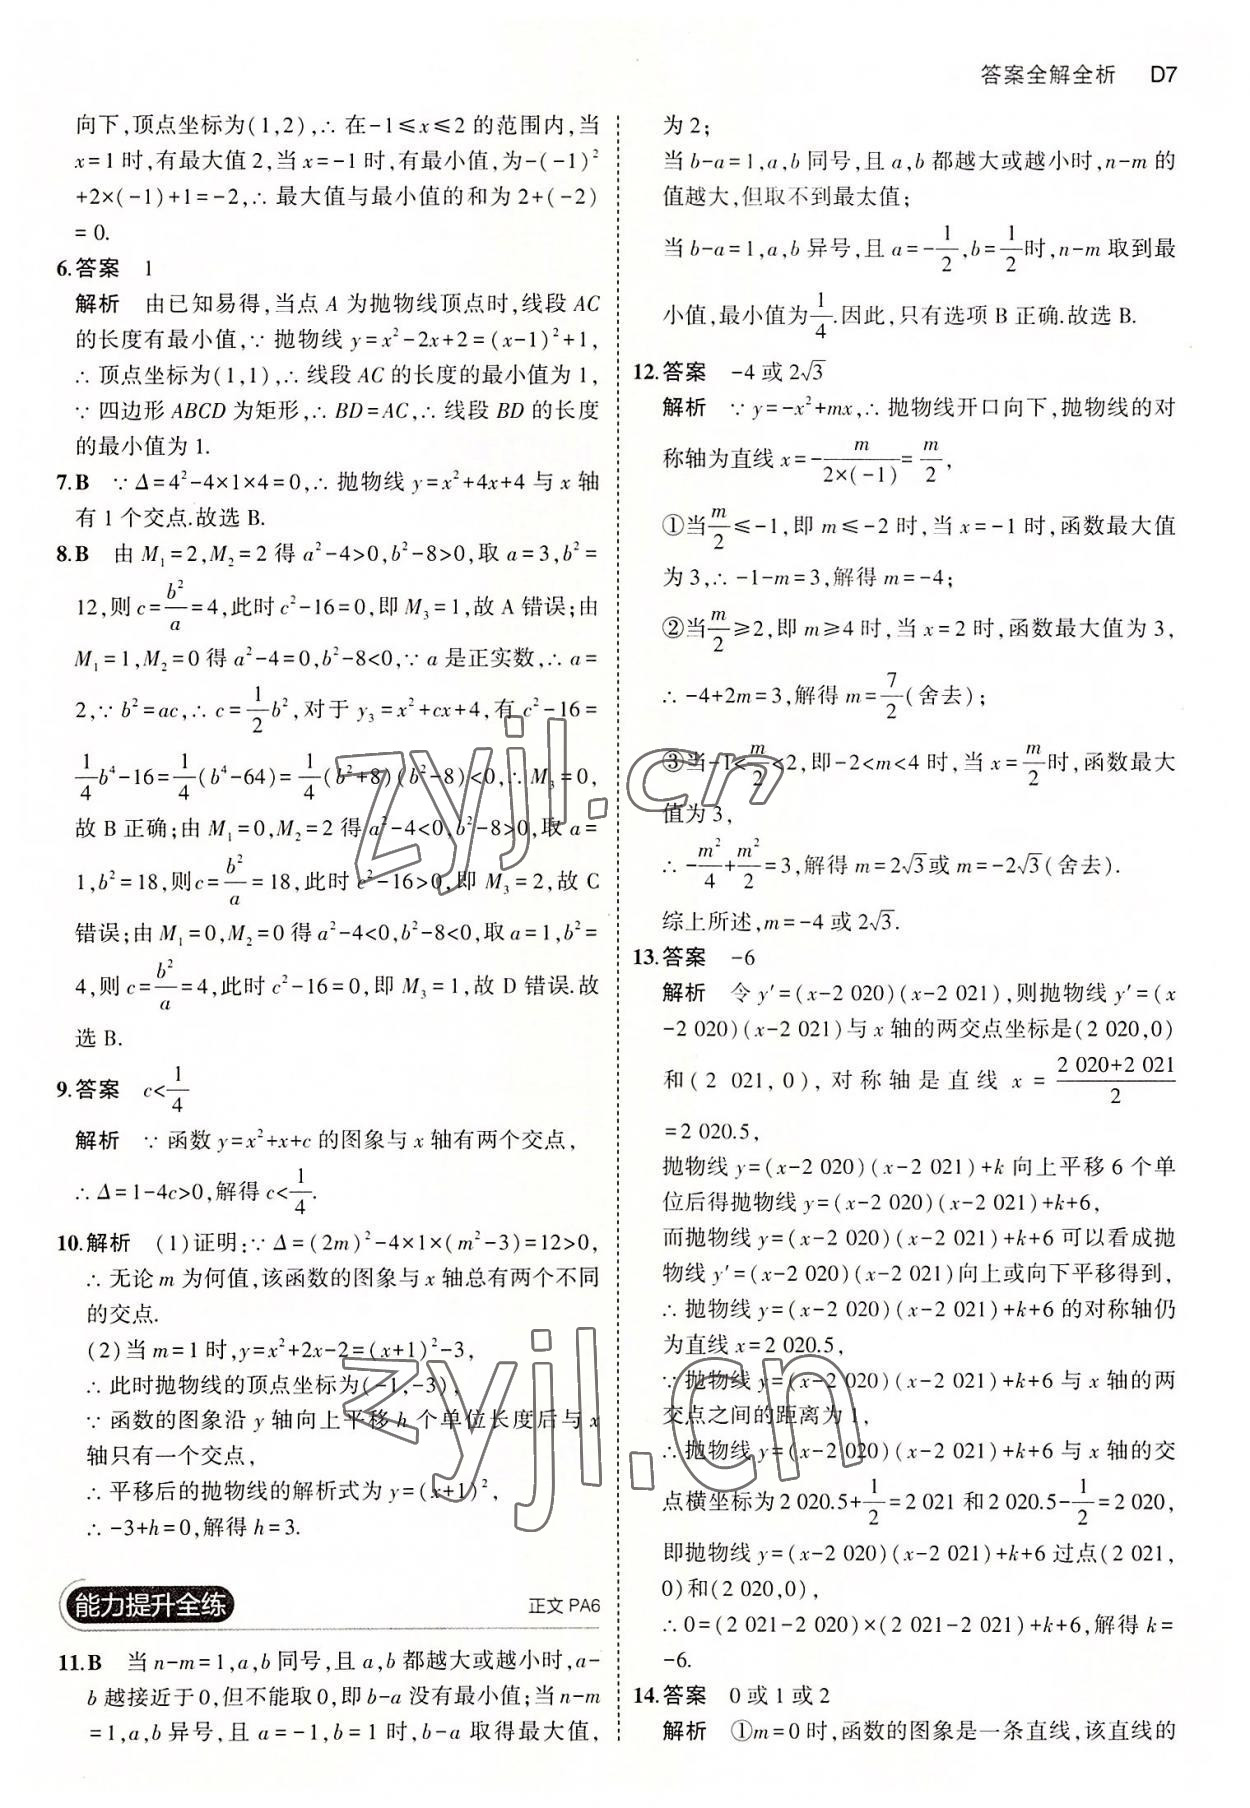 答案全解全析 D7
向下,顶点坐标为(1,2),∴ 在-1≤x≤2 的范围内,当
x=1 时,有最大值 2,当 x=-1 时,有最小值,为-(-1)²
+2×(-1)+1=-2,∴ 最大值与最小值的和为 2+(-2)
=0.
6.答案 1
解析 由已知易得,当点 A 为抛物线顶点时,线段 AC
的长度有最小值,∵ 抛物线 y=x²-2x+2=(x-1)²+1,
∴ 顶点坐标为(1,1),∴ 线段 AC 的长度的最小值为 1,
∵ 四边形 ABCD 为矩形,∴ BD=AC,∴ 线段 BD 的长度
的最小值为 1.
7.B ∵ Δ=4²-4×1×4=0,∴ 抛物线 y=x²+4x+4 与 x 轴
有 1 个交点.故选 B.
8.B 由 M₁=2,M₂=2 得 a²-4>0,b²-8>0,取 a=3,b²=
12,则 c=b²/a=4,此时 c²-16=0,即 M₃=1,故 A 错误;由
M₁=1,M₂=0 得 a²-4=0,b²-8<0,∵ a 是正实数,∴ a=
2,∵ b²=ac,∴ c=1/2b²,对于 y₃=x²+cx+4,有 c²-16=
1/4b⁴-16=1/4(b⁴-64)=1/4(b²+8)(b²-8)<0,∴ M₃=0,
故 B 正确;由 M₁=0,M₂=2 得 a²-4<0,b²-8>0,取 a=
1,b²=18,则c=b²/a=18,此时 c²-16>0,即 M₃=2,故 C
错误;由 M₁=0,M₂=0 得 a²-4<0,b²-8<0,取 a=1,b²=
4,则 c=b²/a=4,此时 c²-16=0,即 M₃=1,故 D 错误.故
选 B.
9.答案 c<1/4
解析 ∵ 函数 y=x²+x+c 的图象与 x 轴有两个交点,
∴ Δ=1-4c>0,解得 c<1/4.
10.解析 (1)证明:∵ Δ=(2m)²-4×1×(m²-3)=12>0,
∴ 无论 m 为何值,该函数的图象与 x 轴总有两个不同
的交点.
(2)当 m=1 时,y=x²+2x-2=(x+1)²-3,
∴ 此时抛物线的顶点坐标为(-1,-3),
∵ 函数的图象沿 y 轴向上平移 h 个单位长度后与 x
轴只有一个交点,
∴ 平移后的抛物线的解析式为 y=(x+1)²,
∴ -3+h=0,解得 h=3.
能力提升全练 正文 PA6
11.B 当 n-m=1,a,b 同号,且 a,b 都越大或越小时,a-
b 越接近于 0,但不能取 0,即 b-a 没有最小值;当 n-m
=1,a,b 异号,且 a=-1,b=1 时,b-a 取得最大值,
为 2;
当 b-a=1,a,b 同号,且 a,b 都越大或越小时,n-m 的
值越大,但取不到最大值;
当 b-a=1,a,b 异号,且 a=-1/2,b=1/2时,n-m 取到最
小值,最小值为1/4.因此,只有选项 B 正确.故选 B.
12.答案 -4 或 2√3
解析 ∵ y=-x²+mx,∴ 抛物线开口向下,抛物线的对
称轴为直线 x=-m/(2×(-1))=m/2,
①当m/2≤-1,即 m≤-2 时,当 x=-1 时,函数最大值
为 3,∴ -1-m=3,解得 m=-4;
②当m/2≥2,即 m≥4 时,当 x=2 时,函数最大值为 3,
∴ -4+2m=3,解得 m=7/2(舍去);
③当-1<m/2<2,即-2<m<4 时,当 x=m/2时,函数最大
值为 3,
∴ -m²/4+m²/2=3,解得 m=2√3或 m=-2√3(舍去).
综上所述,m=-4 或 2√3.
13.答案 -6
解析 令 y′=(x-2 020)(x-2 021),则抛物线 y′=(x
-2 020)(x-2 021)与 x 轴的两交点坐标是(2 020,0)
和(2 021,0),对称轴是直线 x=(2 020+2 021)/2
=2 020.5,
抛物线 y=(x-2 020)(x-2 021)+k 向上平移 6 个单
位后得抛物线 y=(x-2 020)(x-2 021)+k+6,
而抛物线 y=(x-2 020)(x-2 021)+k+6 可以看成抛
物线 y′=(x-2 020)(x-2 021)向上或向下平移得到,
∴ 抛物线 y=(x-2 020)(x-2 021)+k+6 的对称轴仍
为直线 x=2 020.5,
∵ 抛物线 y=(x-2 020)(x-2 021)+k+6 与 x 轴的两
交点之间的距离为 1,
∴ 抛物线 y=(x-2 020)(x-2 021)+k+6 与 x 轴的交
点横坐标为 2 020.5+1/2=2 021 和 2 020.5-1/2=2 020,
即抛物线 y=(x-2 020)(x-2 021)+k+6 过点(2 021,
0)和(2 020,0),
∴ 0=(2 021-2 020)×(2 021-2 021)+k+6,解得 k=
-6.
14.答案 0 或 1 或 2
解析 ①m=0 时,函数的图象是一条直线,该直线的
zyjl.cn
zyjl.cn